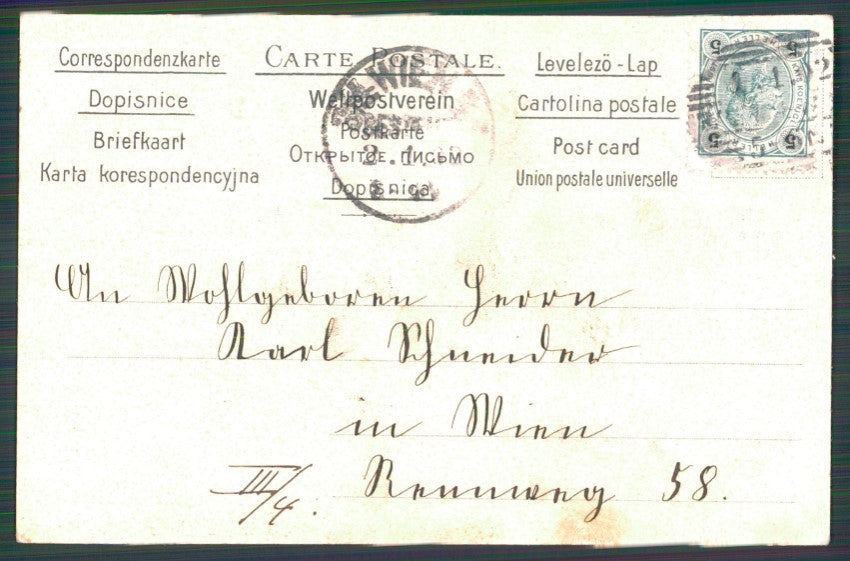 Correspondenzkarte
Dopisnice
Briefkaart
Karta korespondencyjna
CARTE POSTALE.
Weltpostverein
Postkarte
Открытое письмо
Dopisnica
Levelező-Lap
Cartolina postale
Post card
Union postale universelle
WIEN
2.1.
5 5
5 5
An Wohlgeboren Herrn
Karl Schneider
in Wien
III/4. Rennweg 58.